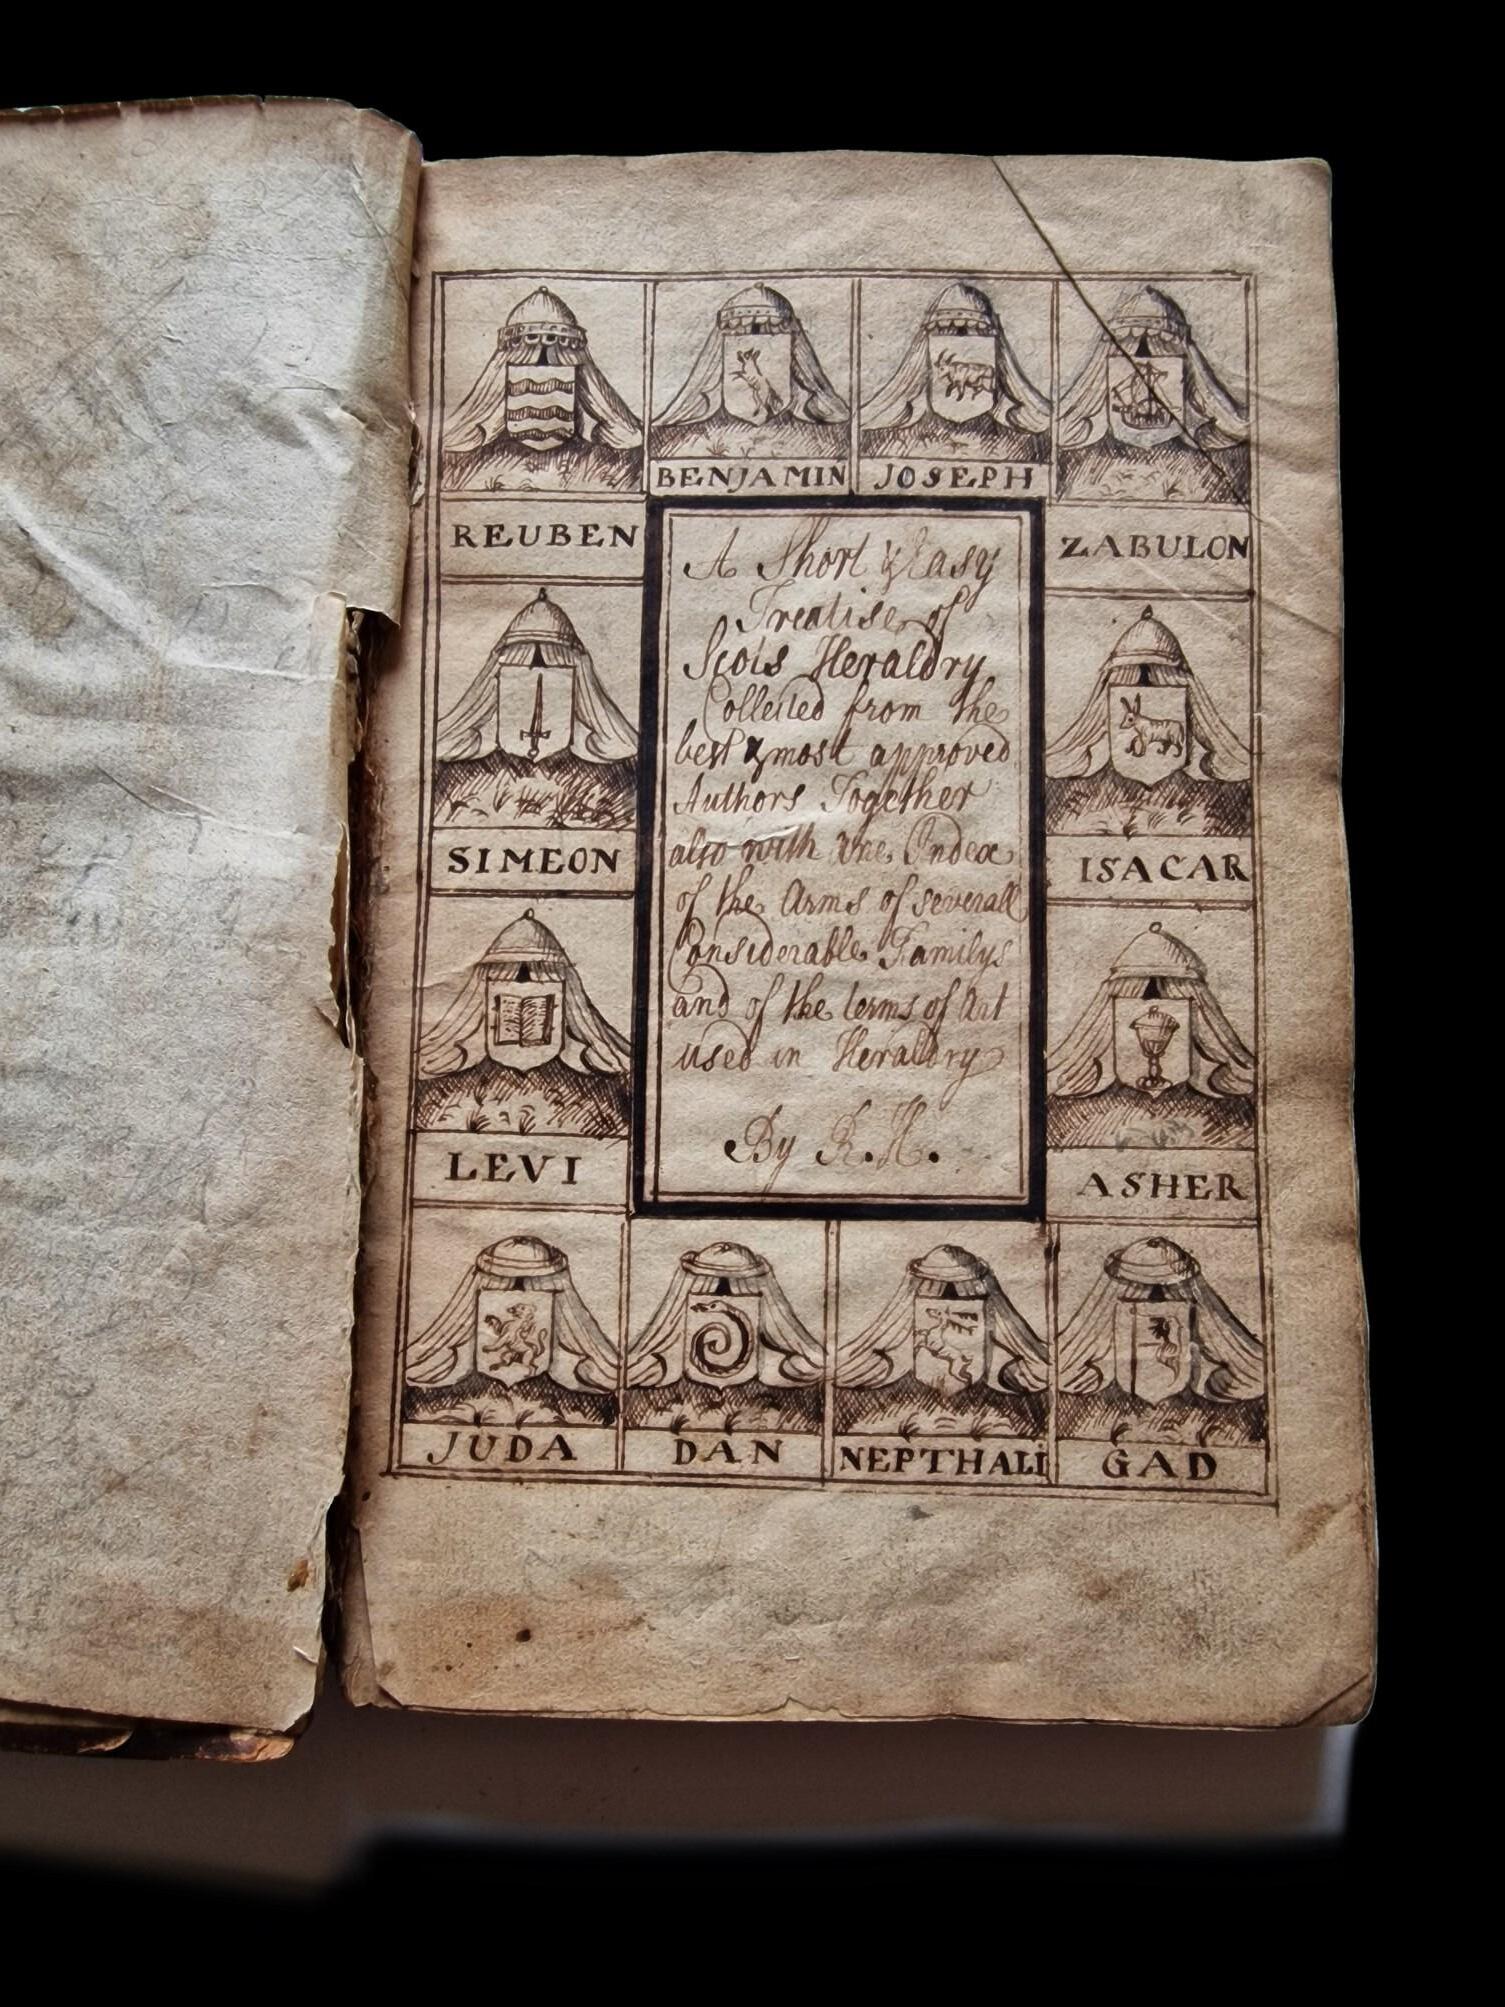 BENJAMIN JOSEPH
REUBEN
ZABULON
A Short & Easy
Treatise of
Scots Heraldry
Collected from the
best & most approved
Authors Together
also with ane Index
of the Arms of severall
Considerable Familys
and of the terms of Art
used in Heraldry
By R. H.
SIMEON
ISACAR
LEVI
ASHER
JUDA DAN NEPTHALI GAD